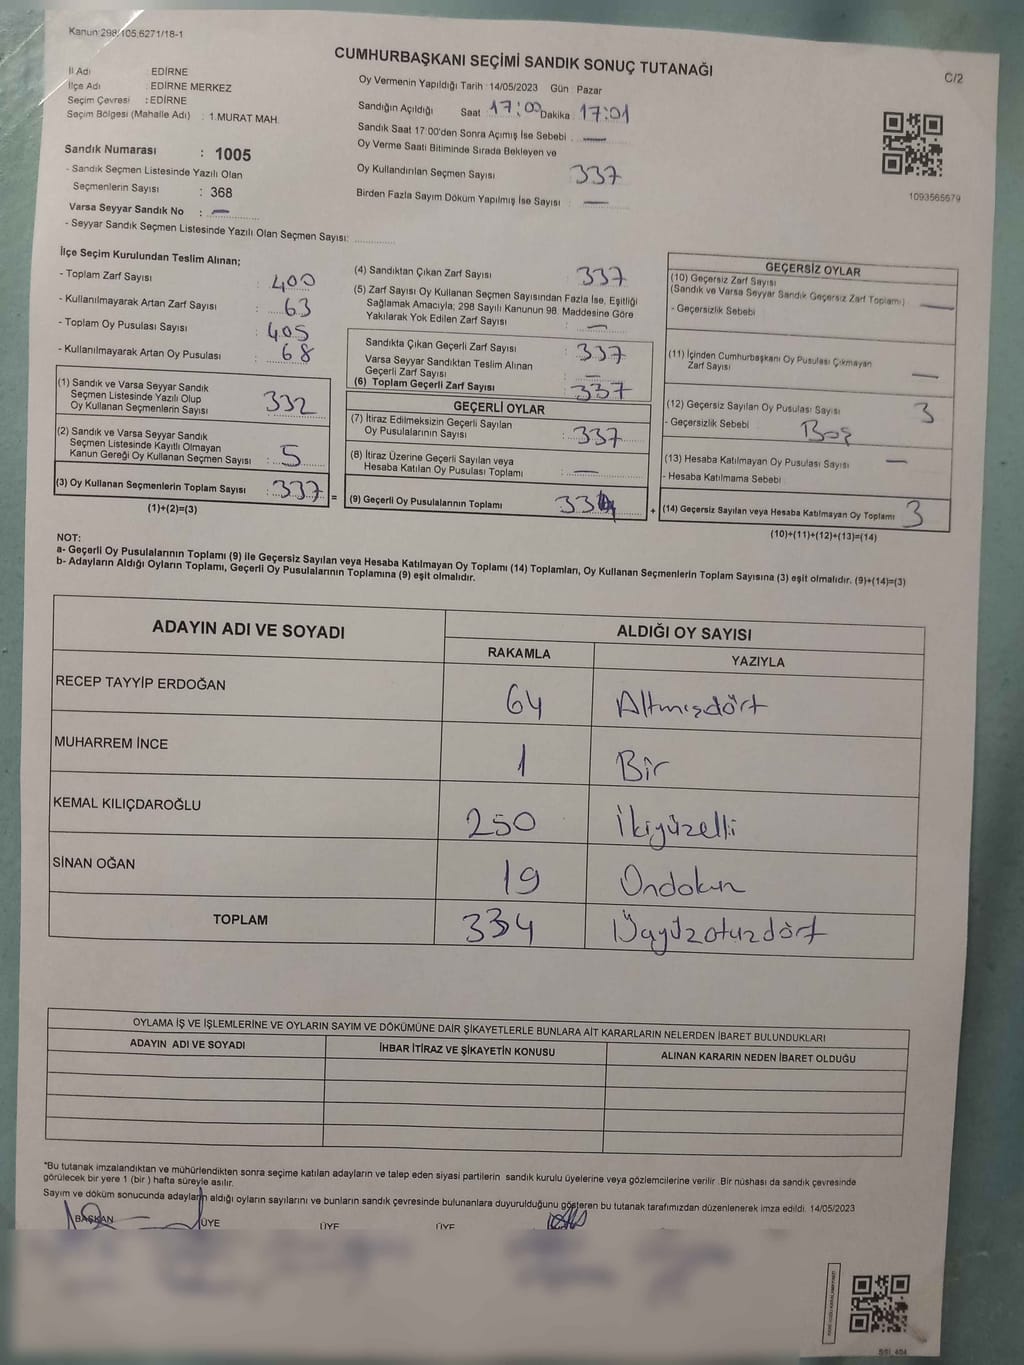 Kanun:298/105,6271/18-1
CUMHURBAŞKANI SEÇİMİ SANDIK SONUÇ TUTANAĞI
C/2
İl Adı : EDİRNE
İlçe Adı : EDİRNE MERKEZ
Seçim Çevresi : EDİRNE
Seçim Bölgesi (Mahalle Adı) : 1.MURAT MAH.
Oy Vermenin Yapıldığı Tarih :14/05/2023 Gün : Pazar
Sandığın Açıldığı Saat 17:00 Dakika : 17:01
Sandık Saat 17:00'den Sonra Açımış İse Sebebi : —
Oy Verme Saati Bitiminde Sırada Bekleyen ve
Oy Kullandırılan Seçmen Sayısı : 337
Birden Fazla Sayım Döküm Yapılmış İse Sayısı : —
1093565679
Sandık Numarası : 1005
- Sandık Seçmen Listesinde Yazılı Olan
Seçmenlerin Sayısı : 368
Varsa Seyyar Sandık No : —
- Seyyar Sandık Seçmen Listesinde Yazılı Olan Seçmen Sayısı:
İlçe Seçim Kurulundan Teslim Alınan;
- Toplam Zarf Sayısı : 400
- Kullanılmayarak Artan Zarf Sayısı : 63
- Toplam Oy Pusulası Sayısı : 405
- Kullanılmayarak Artan Oy Pusulası : 68
(1) Sandık ve Varsa Seyyar Sandık
Seçmen Listesinde Yazılı Olup
Oy Kullanan Seçmenlerin Sayısı : 332
(2) Sandık ve Varsa Seyyar Sandık
Seçmen Listesinde Kayıtlı Olmayan
Kanun Gereği Oy Kullanan Seçmen Sayısı : 5
(3) Oy Kullanan Seçmenlerin Toplam Sayısı : 337 =
(1)+(2)=(3)
(4) Sandıktan Çıkan Zarf Sayısı : 337
(5) Zarf Sayısı Oy Kullanan Seçmen Sayısından Fazla İse, Eşitliği
Sağlamak Amacıyla; 298 Sayılı Kanunun 98. Maddesine Göre
Yakılarak Yok Edilen Zarf Sayısı : —
Sandıkta Çıkan Geçerli Zarf Sayısı : 337
Varsa Seyyar Sandıktan Teslim Alınan
Geçerli Zarf Sayısı : —
(6) Toplam Geçerli Zarf Sayısı : 337
GEÇERLİ OYLAR
(7) İtiraz Edilmeksizin Geçerli Sayılan
Oy Pusulalarının Sayısı : 337
(8) İtiraz Üzerine Geçerli Sayılan veya
Hesaba Katılan Oy Pusulası Toplamı : —
(9) Geçerli Oy Pusulalarının Toplamı : 334 +
GEÇERSİZ OYLAR
(10) Geçersiz Zarf Sayısı
(Sandık ve Varsa Seyyar Sandık Geçersiz Zarf Toplamı) —
- Geçersizlik Sebebi
(11) İçinden Cumhurbaşkanı Oy Pusulası Çıkmayan
Zarf Sayısı —
(12) Geçersiz Sayılan Oy Pusulası Sayısı 3
- Geçersizlik Sebebi Boş
(13) Hesaba Katılmayan Oy Pusulası Sayısı —
- Hesaba Katılmama Sebebi
(14) Geçersiz Sayılan veya Hesaba Katılmayan Oy Toplamı 3
(10)+(11)+(12)+(13)=(14)
NOT:
a- Geçerli Oy Pusulalarının Toplamı (9) ile Geçersiz Sayılan veya Hesaba Katılmayan Oy Toplamı (14) Toplamları, Oy Kullanan Seçmenlerin Toplam Sayısına (3) eşit olmalıdır. (9)+(14)=(3)
b- Adayların Aldığı Oyların Toplamı, Geçerli Oy Pusulalarının Toplamına (9) eşit olmalıdır.
ADAYIN ADI VE SOYADI ALDIĞI OY SAYISI
RAKAMLA YAZIYLA
RECEP TAYYİP ERDOĞAN 64 Altmışdört
MUHARREM İNCE 1 Bir
KEMAL KILIÇDAROĞLU 250 İkiyüzelli
SİNAN OĞAN 19 Ondokuz
TOPLAM 334 Üçyüzotuzdört
OYLAMA İŞ VE İŞLEMLERİNE VE OYLARIN SAYIM VE DÖKÜMÜNE DAİR ŞİKAYETLERLE BUNLARA AİT KARARLARIN NELERDEN İBARET BULUNDUKLARI
ADAYIN ADI VE SOYADI İHBAR İTİRAZ VE ŞİKAYETİN KONUSU ALINAN KARARIN NEDEN İBARET OLDUĞU
*Bu tutanak imzalandıktan ve mühürlendikten sonra seçime katılan adayların ve talep eden siyasi partilerin sandık kurulu üyelerine veya gözlemcilerine verilir. Bir nüshası da sandık çevresinde
görülecek bir yere 1 (bir ) hafta süreyle asılır.
Sayım ve döküm sonucunda adayların aldığı oyların sayılarını ve bunların sandık çevresinde bulunanlara duyurulduğunu gösteren bu tutanak tarafımızdan düzenlenerek imza edildi. 14/05/2023
BAŞKAN ÜYE ÜYE ÜYE